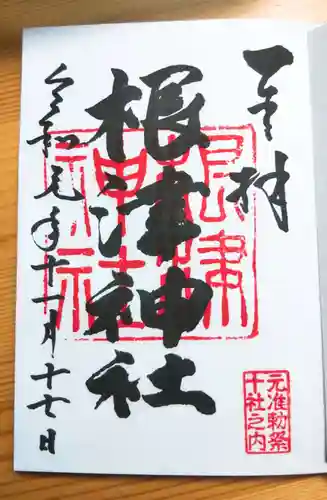 奉拝
根津神社
令和元年十一月十七日
根津
神社
元准勅祭
十社之内